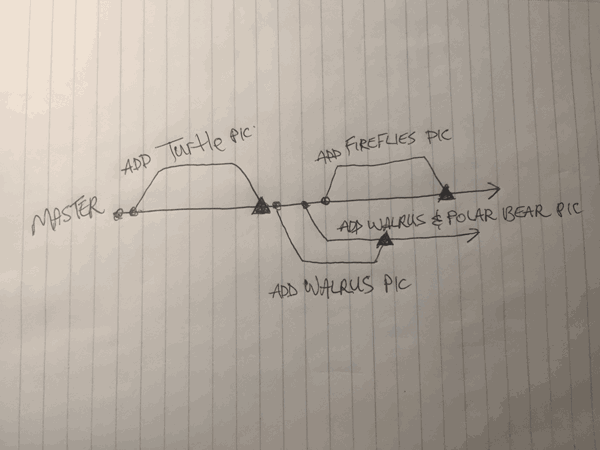 ADD Turtle PIC
ADD FIREFLIES PIC
MASTER
ADD WALRUS & POLAR BEAR PIC
ADD WALRUS PIC